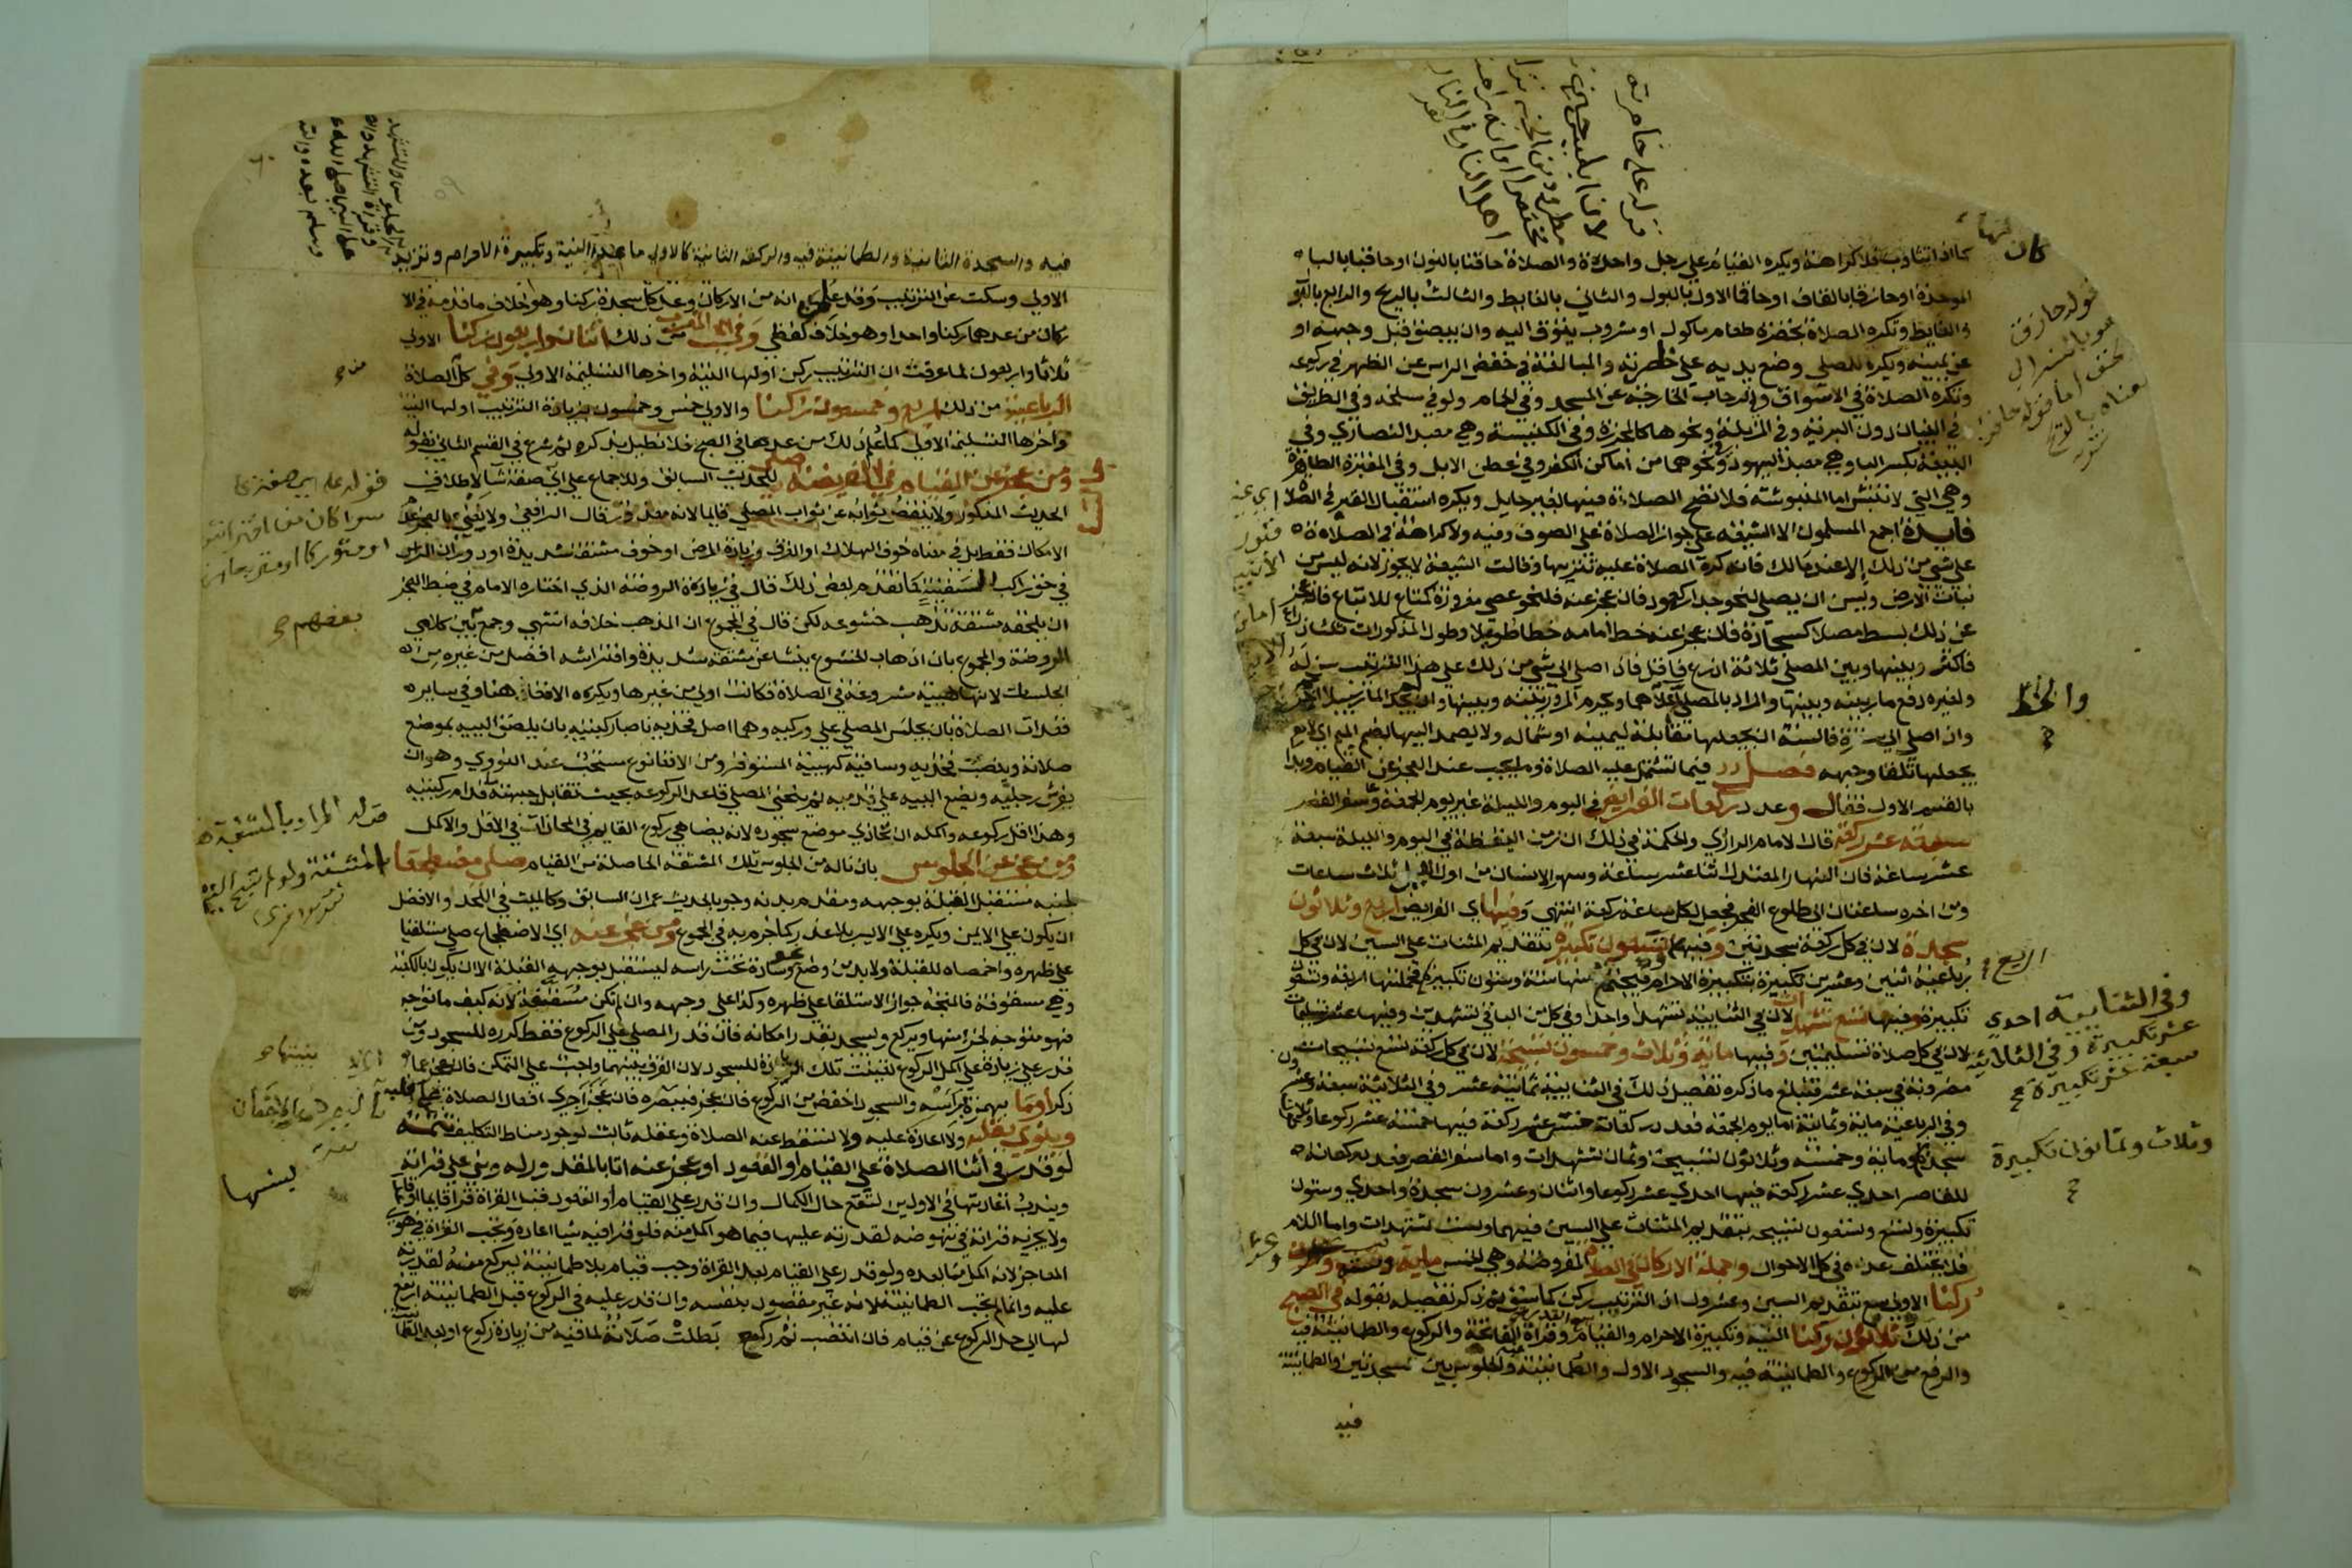 كما اذا تثاوب فلا كراهة ويكره القيام على رجل واحدة والصلاة حاقنا بالنون او حاقبا بالباء
الموحدة او حازقا بالقاف او حاقما الاول بالبول والثاني بالغايط والثالث بالريح والرابع بالبول
والغايط وتكره الصلاة بحضرة طعام ماكول او مشروب يتوق اليه وان يبصق قبل وجهه او
عن يمينه ويكره للمصلي وضع يديه على خاصرته والمبالغة في خفض الراس عن الظهر في ركوعه
وتكره الصلاة في الاسواق والرحاب الخارجة عن المسجد وفي الحمام ولو في مسلخه وفي الطريق
في البنيان دون البرية وفي المزبلة ونحوها كالمجزرة وفي الكنيسة وهي معبد النصاري وفي
البيعة بكسر البا وهي معبد اليهود ونحوهما من اماكن الكفر وفي عطن الابل وفي المقبرة الطاهرة
وهي التي لا تنبش اما المنبوشة فلا تصح الصلاة فيها بغير حايل ويكره استقبال القبر في الصلاة
فايدة اجمع المسلمون الا الشيعة على جواز الصلاة على الصوف وفيه ولا كراهة في الصلاة
على شي من ذلك الا عند مالك فانه كره الصلاة عليه تنزيها وقالت الشيعة لا يجوز لانه ليس من
نبات الارض ويسن ان يصلي لنحو جدار كعمود فان عجز عنه فلنحو عصي مغروزة كمتاع للاتباع فان عجز
عن ذلك بسط مصلا كسجادة فان عجز عنه خط امامه خطا طويلا وطول المذكورات ثلثا ذراع
فاكثر وبينها وبين المصلي ثلاثة اذرع فاقل فاذا صلى الى شي من ذلك على هذا الترتيب سن له
ولغيره دفع مار بينه وبينها والمراد بالمصلى اعلاهما ويحرم المرور بينه وبينها وان لم يجد المار سبيلا اخر
وان صلى الى سترة فالسنة ان يجعلها مقابلة ليمينه او شماله ولا يصمد اليها بضم الميم اي لا
يجعلها تلقا وجهه فصل فيما تشتمل عليه الصلاة وما يجب عند العجز عن القيام وبدا
بالقسم الاول فقال وعدد ركعات الفرايض في اليوم والليلة غير يوم الجمعة وسفر القصر
سبعة عشر ركعة قال الامام الرازي والحكمة في ذلك ان زمن اليقظة في اليوم والليلة سبعة
عشر ساعة فان النهار المعتدل اثنا عشر ساعة وسهر الانسان من اول الليل ثلاث ساعات
ومن اخره ساعتان الى طلوع الفجر فجعل لكل ساعة ركعة انتهى وفيها اي الفرايض اربع وثلاثون
سجدة لان في كل ركعة سجدتين وفيها اربع وتسعون تكبيرة بتقديم المثناة على السين لان في كل
رباعية اثنين وعشرين تكبيرة بتكبيرة الاحرام فيجتمع منها ستة وستون تكبيرة فجملتها اربعة وتسعون
تكبيرة وفيها تسع تشهدات لان في الثنايية تشهدا واحدا وفي كل من الباقي تشهدين وفيها عشر تسليمات
لان في كل صلاة تسليمتين وفيها ماية وثلاث وخمسون تسبيحة لان في كل ركعة تسع تسبيحات
مضروبة في سبعة عشر فتبلغ ما ذكره تفصيل ذلك في الثنايية ثمانية عشر وفي الثلاثية سبعة وعشرون
وفي الرباعية ماية وثمانية اما يوم الجمعة فعدد ركعاته خمسة عشر ركعة فيها خمسة عشر ركوعا وثلاثون
سجدة وماية وخمسة وثلاثون تسبيحة وثمان تشهدات واما سفر القصر فعدد ركعاته
للقاصر احدي عشر ركعة فيها احدي عشر ركوعا واثنان وعشرون سجدة واحدي وستون
تكبيرة وتسع وتسعون تسبيحة بتقديم المثناة على السين فيهما وست تشهدات واما السلام
فلا يختلف عدده في كل الاحوال وجملة الاركان في الصلاة المفروضة وهي الخمس ماية وستة وعشرون
ركنا الاولى سبع بتقديم السين وعشرون اذ الترتيب ركن كما سبق ثم ذكر تفصيله بقوله في الصبح
من ذلك ثلاثون ركنا النية وتكبيرة الاحرام والقيام وقراة الفاتحة والركوع والطمانينة فيه
والرفع من الركوع والطمانينة فيه والسجود الاول والطمانينة فيه والجلوس بين السجدتين والطمانينة
فيه
كان
قوله حازقا
والخط
اربع
وفي الثنايية احدي
عشر تكبيرة وفي الثلاثية
سبعة عشر تكبيرة
وثلاث وثمانون تكبيرة
فيه والسجدة الثانية والطمانينة فيه والركعة الثانية كالاولى ما عدا النية وتكبيرة الاحرام وتزيد
الاولى وسكت عن الترتيب وقد علم انه من الاركان وعد كل سجدة ركنا وهو خلاف ما قدمه في الا
ركان من عدهما ركنا واحدا وهو خلاف لفظي وفي المغرب من ذلك اثنان واربعون ركنا الاولى
ثلاثا واربعون لما عرفت ان الترتيب ركن اولها النية واخرها التسليمة الاولى وفي كل الصلاة
الرباعية من ذلك اربع وخمسون ركنا والاولى خمس وخمسون بزيادة الترتيب اولها النية
واخرها التسليمة الاولى كما علم ذلك من عدها في الصبح فلا نطيل بذكره ثم شرع في القسم الثاني بقوله
ومن عجز عن القيام في الفريضة صلى للحديث السابق وللاجماع على اي صفة شا لاطلاق
الحديث المذكور ولا ينقص ثوابه عن ثواب المصلي قايما لانه معذور قال الرافعي ولا نعني بالعجز عدم
الامكان فقط بل في معناه خوف الهلاك او الغرق وزيادة المرض او خوف مشقة شديدة او دوران الراس
في حق راكب السفينة كما تقدم بعض ذلك قال في زيادة الروضة الذي اختاره الامام في ضبط العجز
ان يلحقه مشقة تذهب خشوعه لكن قال في المجموع ان المذهب خلافه انتهى وجمع بين كلامي
الروضة والمجموع بان اذهاب الخشوع ينشا عن مشقة شديدة وافتراشه افضل من غيره من
الجلسات لانها هيية مشروعة في الصلاة فكانت اولى من غيرها ويكره الاقعا هنا وفي ساير
قعدات الصلاة بان يجلس المصلي على وركيه وهما اصل فخذيه ناصبا ركبتيه بان يلصق الييه بموضع
صلاته وينصب فخذيه وساقيه كهيية المستوفز ومن الاقعا نوع مستحب عند النووي وهو ان
يفرش رجليه ويضع الييه على قدميه ثم ينحني المصلي قاعدا لركوعه بحيث تقابل جبهته قدام ركبتيه
وهذا اقل ركوعه واكمله ان تحاذي موضع سجوده لانه يضاهي ركوع القايم في المحاذاة في الاقل والاكمل
ومن عجز عن الجلوس بان ناله من الجلوس تلك المشقة الحاصلة من القيام صلى مضطجعا
لجنبه مستقبل القبلة بوجهه ومقدم بدنه وجوبا لحديث عمران السابق وكالميت في اللحد والافضل
ان يكون على الايمن ويكره على الايسر بلا عذر كما جزم به في المجموع ومن عجز عنه اي الاضطجاع صلى مستلقيا
على ظهره واخمصاه للقبلة ولا بد من وضع نحو وسادة تحت راسه ليستقبل بوجهه القبلة الا ان يكون بالكعبة
وهي مسقوفة فالمتجه جواز الاستلقا على ظهره وكذا على وجهه وان لم تكن مسقفة لانه كيف ما توجه
فهو متوجه لجزء منها ويركع ويسجد بقدر امكانه فان قدر المصلي على الركوع فقط كرره للسجود ومن
قدر على زيادة على اكمل الركوع تعينت تلك الزيادة للسجود لان الفرق بينهما واجب على المتمكن فان عجز عما
ذكر اوما بهمزة براسه والسجود اخفض من الركوع فان عجز فببصره فان عجز اجرى افعال الصلاة على قلبه
وينوي بقلبه ولا اعادة عليه ولا تسقط عنه الصلاة وعقله ثابت لوجود مناط التكليف تتمة
لو قدر في اثنا الصلاة على القيام او القعود او عجز عنه اتى بالمقدور له وبنى على قراته
ويندب اعادتها في الاولين لتقع حال الكمال وان قدر على القيام او القعود قبل القراة قرا قايما او قاعدا
ولا يجزيه قراته في نهوضه لقدرته عليها فيما هو اكمل منه فلو قرا فيه شيا اعاده وتجب القراة في هوي
العاجز لانه اكمل مما بعده ولو قدر على القيام بعد القراة وجب قيام بلا طمانينة ليركع منه لقدرته
عليه وانما لم تجب الطمانينة لانه غير مقصود بنفسه وان قدر عليه في الركوع قبل الطمانينة ارتفع
لها الى حد الركوع عن قيام فان انتصب ثم ركع بطلت صلاته لما فيه من زيادة ركوع او بعد الطمانينة
بعضهم